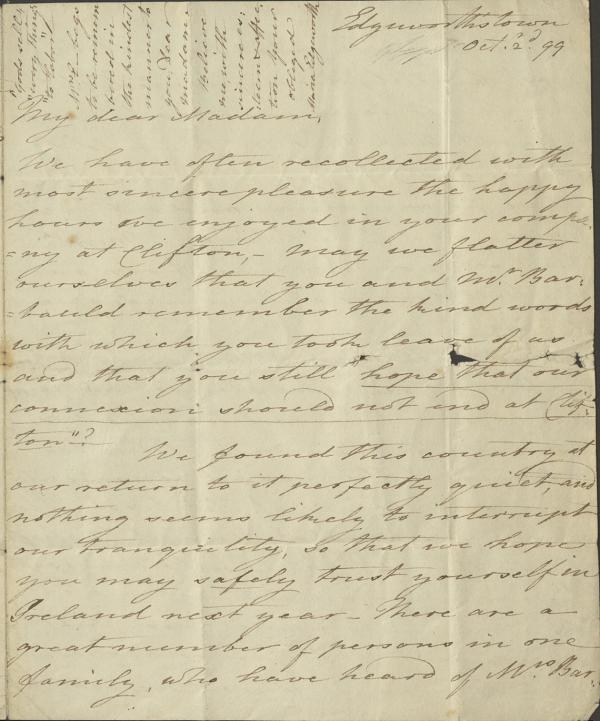 Edgeworthstown
Oct. 2d 99
My dear Madam,
We have often recollected with
most sincere pleasure the happy
hours we enjoyed in your compa
=ny at Clifton, – may we flatter
ourselves that you and Mr Bar=
=bauld remember the kind words
with which you took leave of us
and that you still "hope that our
connexion should not end at Clif=
ton"?
We found this country at
our return to it perfectly quiet, and
nothing seems likely to interrupt
our tranquility, so that we hope
you may safely trust yourself in
Ireland next year – There are a
great number of persons in one
family, who have heard of Mrs Bar=
"every thing
to Labor"
begs
to be remem
bered in
the kindest
manner to
you. Dear
Madam,
believe
me with
sincere es:
teem & affec
tion your
obliged
Maria Edgeworth